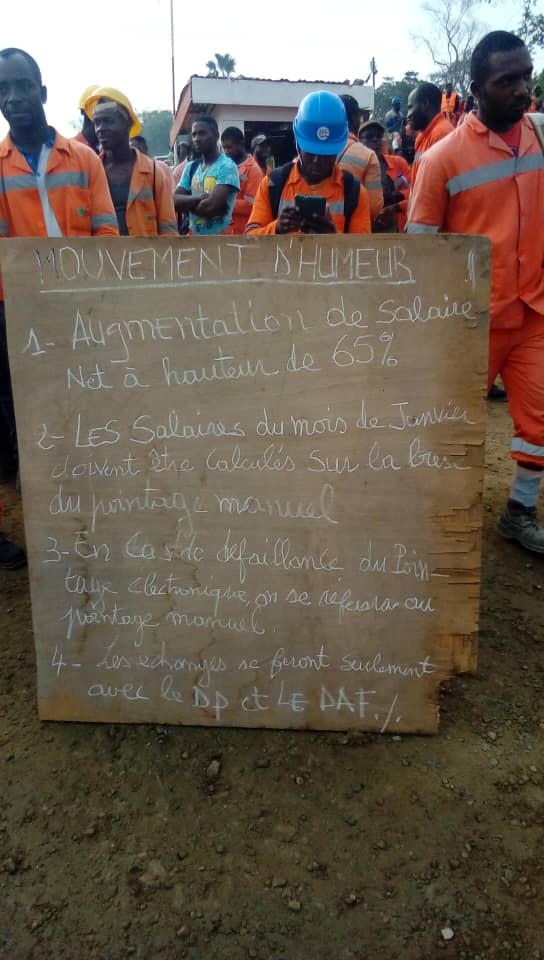 MOUVEMENT D'HUMEUR
1- Augmentation de Salaire
Net à hauteur de 65%
2- LES Salaires du mois de Janvier
doivent être Calculés Sur la base
du pointage manuel
3- En Cas de défaillance du Poin-
tage électronique, on se référera au
pointage manuel.
4- Les échanges se feront seulement
avec le DP et LE DAF./.